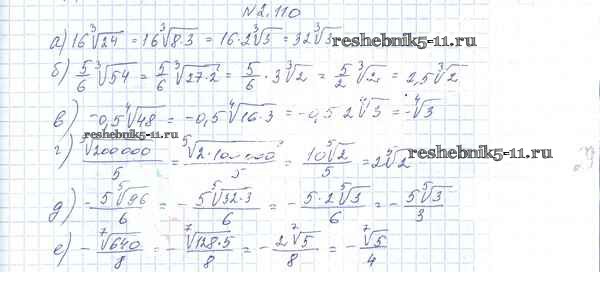 №2.110
а) 16∛24 = 16∛8·3 = 16·2∛3 = 32∛3 reshebnik5-11.ru
б) 5/6 ∛54 = 5/6 ∛27·2 = 5/6 · 3∛2 = 5/2 ∛2 = 2,5∛2
в) -0,5∜48 = -0,5∜16·3 = -0,5 2∜3 = -∜3
reshebnik5-11.ru
г) ⁵√200000/5 = ⁵√2·100000/5 = 10⁵√2/5 = 2⁵√2 reshebnik5-11.ru
д) -5⁵√96/6 = -5⁵√32·3/6 = -5·2⁵√3/6 = -5⁵√3/3
е) -⁷√640/8 = -⁷√128·5/8 = -2⁷√5/8 = -⁷√5/4